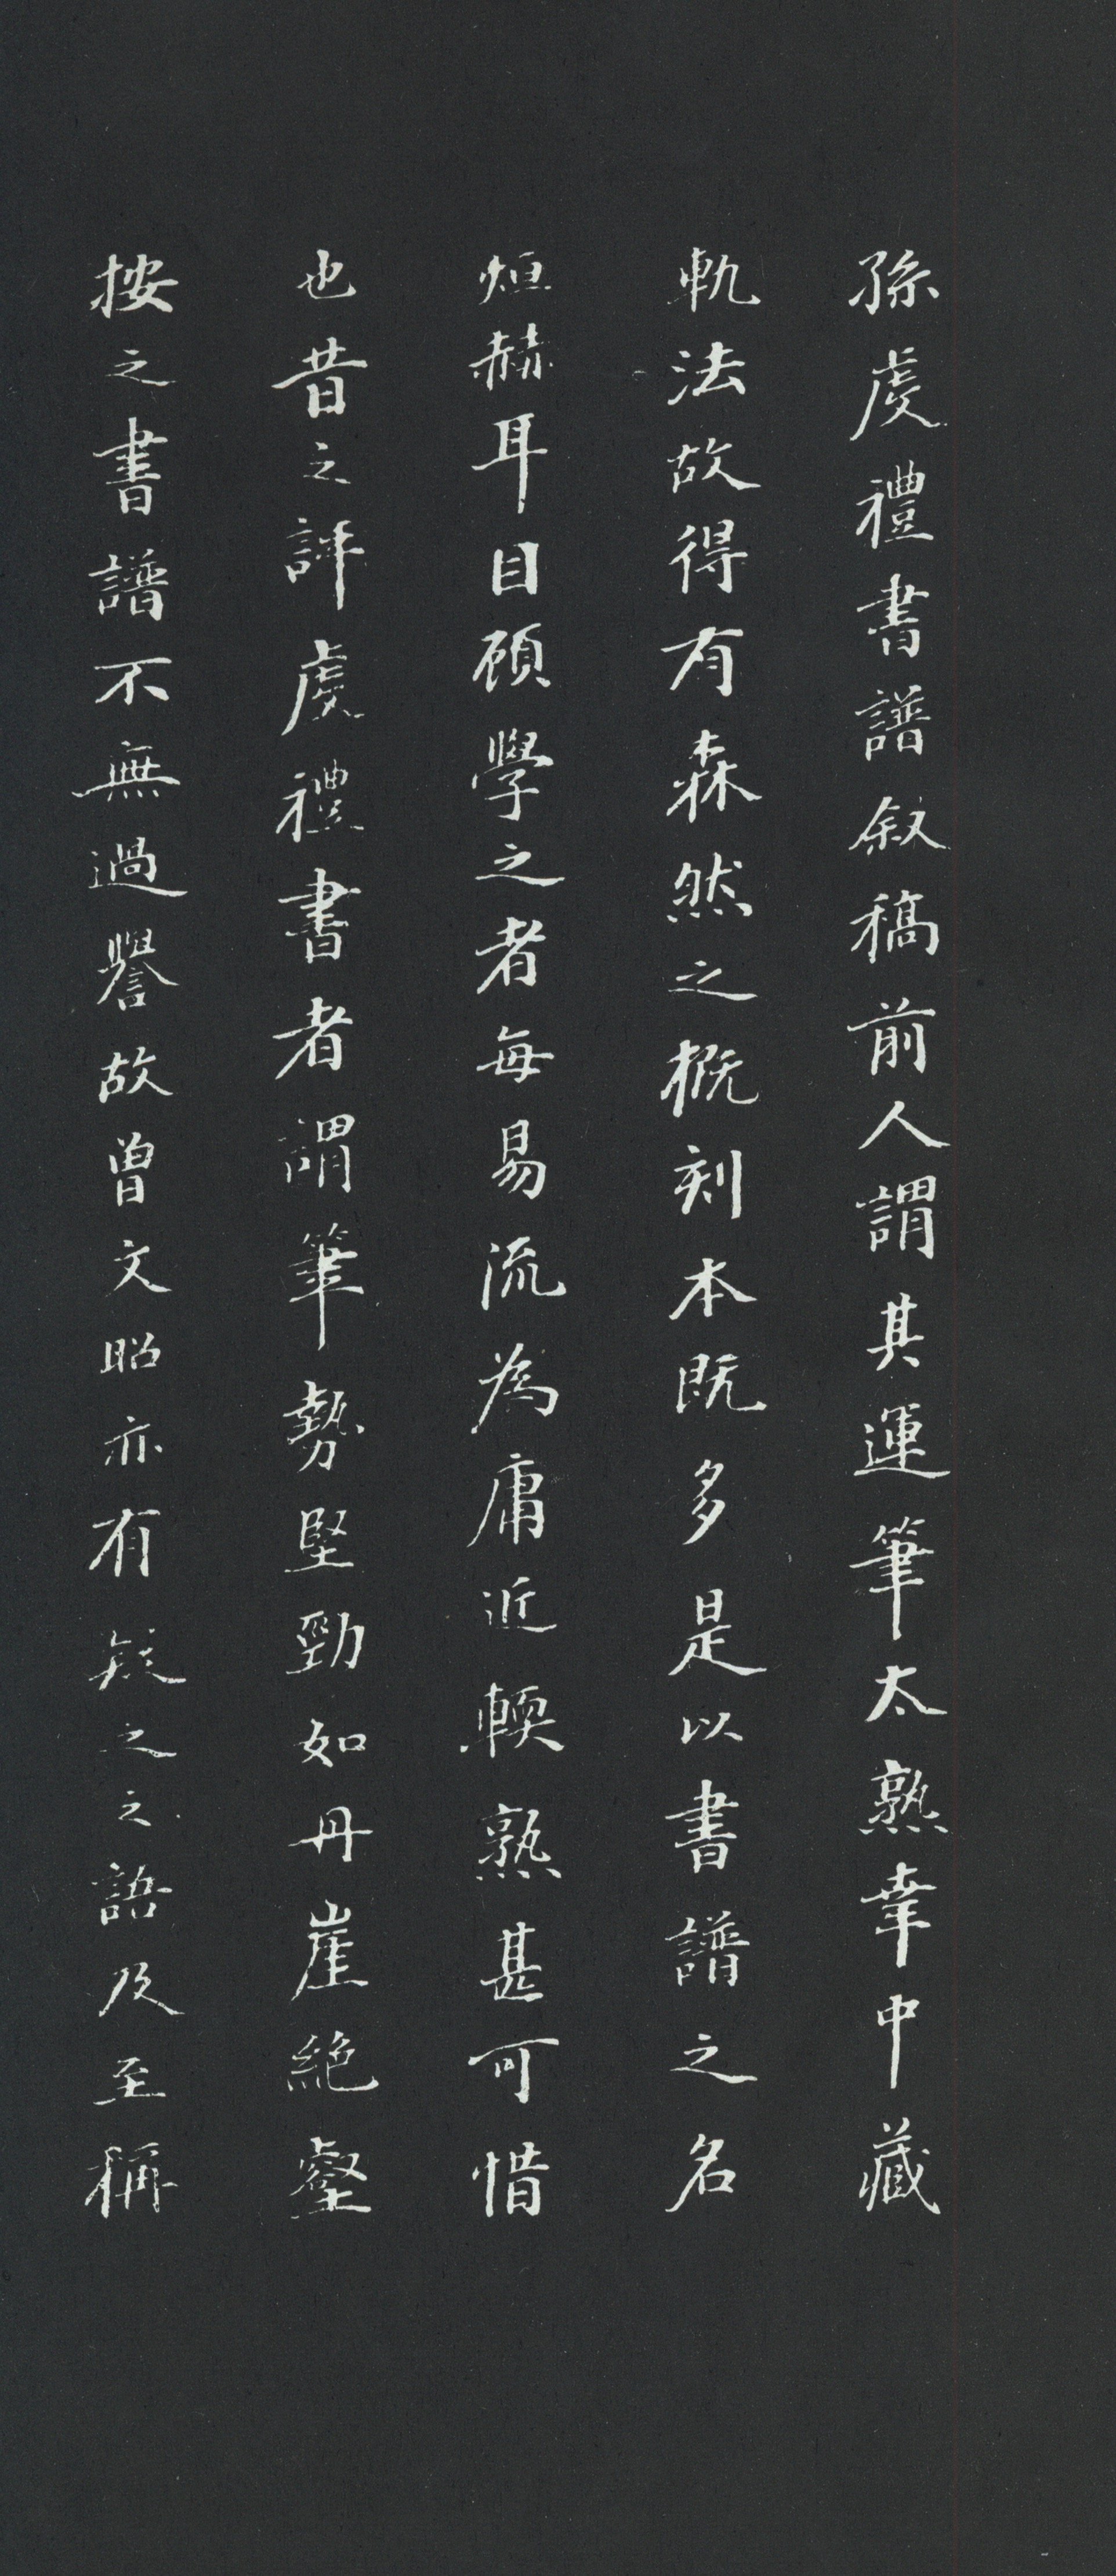 孫虔禮書譜叙稿前人謂其運筆太熟幸中藏
軌法故得有森然之概刻本既多是以書譜之名
烜赫耳目顧學之者每易流為庸近輭熟甚可惜
也昔之評虔禮書者謂筆勢堅勁如丹崖絕壑
按之書譜不無過譽故曾文昭亦有疑之之語及至稱